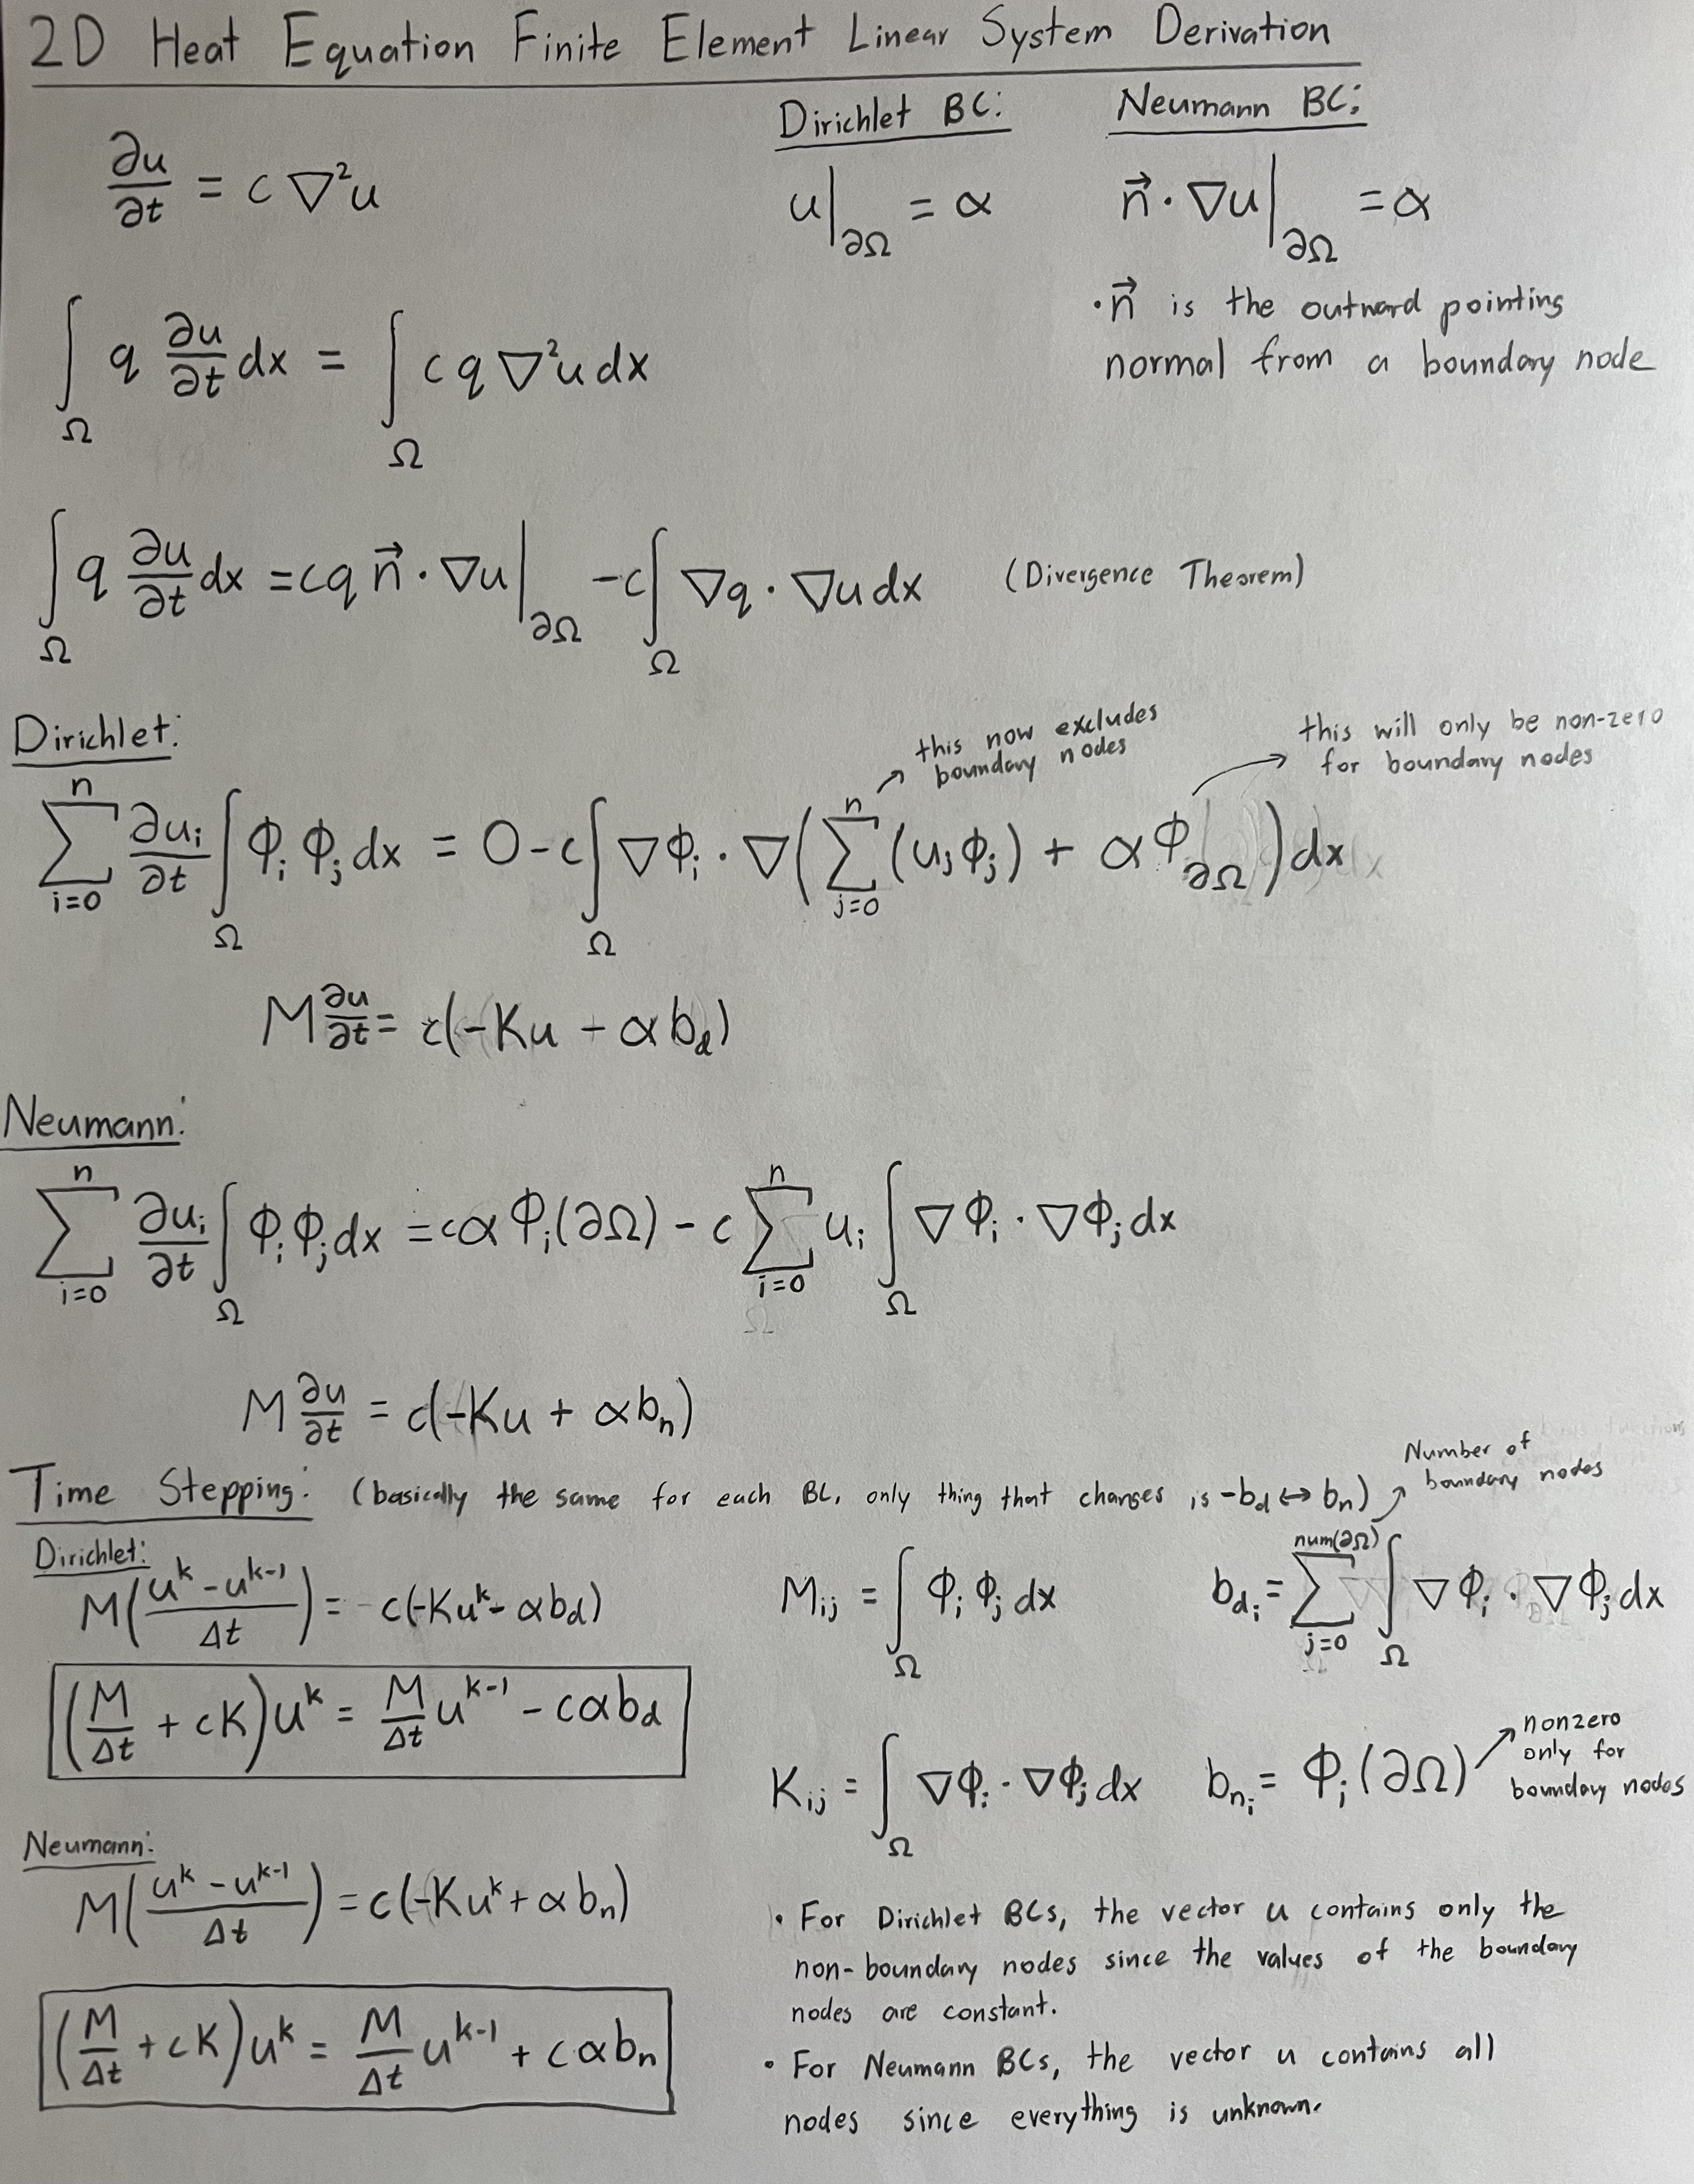 2D Heat Equation Finite Element Linear System Derivation
Dirichlet BC:
Neumann BC:
∂u/∂t = c ∇²u
u|∂Ω = α
n⃗ · ∇u|∂Ω = α
• n⃗ is the outward pointing
normal from a boundary node
∫Ω q ∂u/∂t dx = ∫Ω c q ∇²u dx
∫Ω q ∂u/∂t dx = c q n⃗ · ∇u|∂Ω - c ∫Ω ∇q · ∇u dx (Divergence Theorem)
Dirichlet:
this now excludes
boundary nodes
this will only be non-zero
for boundary nodes
∑_{i=0}^{n} ∂u_i/∂t ∫Ω Φ_i Φ_j dx = 0 - c ∫Ω ∇Φ_i · ∇(∑_{j=0}^{n} (u_j Φ_j) + α Φ_∂Ω) dx
M ∂u/∂t = c(-Ku - α b_d)
Neumann:
∑_{i=0}^{n} ∂u_i/∂t ∫Ω Φ_i Φ_j dx = cα Φ_i(∂Ω) - c ∑_{i=0}^{n} u_i ∫Ω ∇Φ_i · ∇Φ_j dx
M ∂u/∂t = c(-Ku + α b_n)
Time Stepping: (basically the same for each BC, only thing that changes is -b_d ↔ b_n)
Number of
boundary nodes
Dirichlet:
M((u^k - u^{k-1})/Δt) = c(-Ku^k - α b_d)
(M/Δt + cK)u^k = M/Δt u^{k-1} - cα b_d
Neumann:
M((u^k - u^{k-1})/Δt) = c(-Ku^k + α b_n)
(M/Δt + cK)u^k = M/Δt u^{k-1} + cα b_n
M_ij = ∫Ω Φ_i Φ_j dx
b_{d_i} = ∑_{j=0}^{num(∂Ω)} ∫Ω ∇Φ_i · ∇Φ_j dx
K_ij = ∫Ω ∇Φ_i · ∇Φ_j dx
b_{n_i} = Φ_i(∂Ω)
nonzero
only for
boundary nodes
• For Dirichlet BCs, the vector u contains only the
non-boundary nodes since the values of the boundary
nodes are constant.
• For Neumann BCs, the vector u contains all
nodes since everything is unknown.